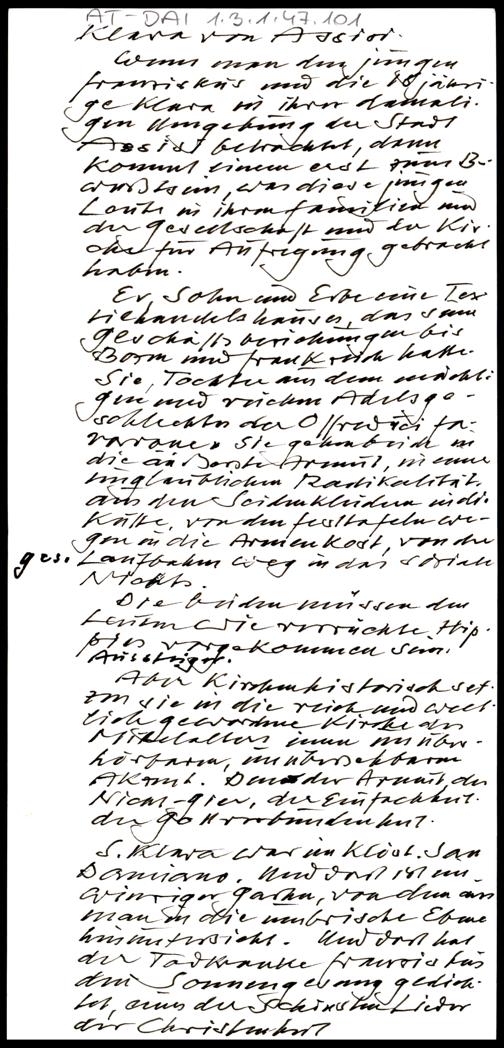 AT-DAI 1.3.1.47.101
Klara von Assisi.
Wenn man den jungen
Franziskus und die 18 jähri-
ge Klara in ihrer damali-
gen Umgebung der Stadt
Assisi betrachtet, dann
kommt einem erst zum Be-
wußtsein, was diese jungen
Leute in ihren Familien und
der Gesellschaft und der Kir-
che für Aufregung gebracht
haben.
Er, Sohn und Erbe eine Tex-
tilhandelshauses, das sein
Geschäftsbeziehungen bis
und Frankreich hatte.
Sie, Tochter aus dem mächti-
gen und reichen Adelsge-
schlechter der Offreduci fa-
varone. Sie gehen beide in
die äußerste Armut, in einer
unglaublichen Radikalität.
aus den Seidenkleidern in die
Kutte, von den Festtafeln we-
gen in die Armenkost, von der
ges. Laufbahn weg in das soziale
Nichts.
Die beiden müssen den
Leuten wie verrückte Hip-
pies vorgekommen sein.
Aussteiger.
Aber kirchenhistorisch set-
zen sie in die reich und welt-
lich gewordne Kirche des
Mittelalters einen unüber-
hörbaren, unübersehbaren
Akzent. Den der Armut, der
Nicht-gier, der Einfachheit.
der Gottverbundenheit.
S. Klara war im Klost. San
Damiano. Und dort ist ein
winziger Garten, von dem aus
man in die umbrische Ebene
hinuntersieht. Und dort hat
der Todkranke Franziskus
den Sonnengesang gedich-
tet, eines der schönsten Lieder
der Christenheit